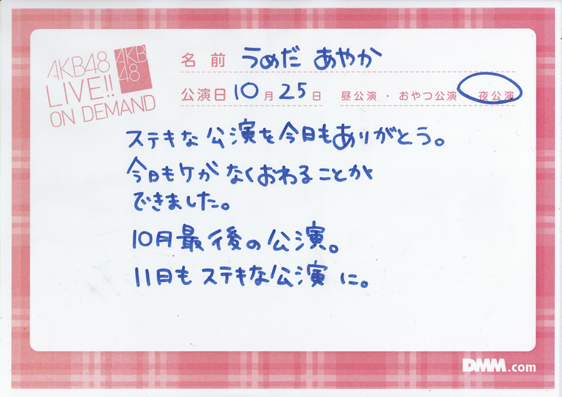 AKB48
LIVE!!
ON DEMAND
AKB
48
名前 うめだ あやか
公演日 10月25日 昼公演・おやつ公演 夜公演
ステキな公演を今日もありがとう。
今日もケガなくおわることが
できました。
10月最後の公演。
11月もステキな公演に。
DMM.com